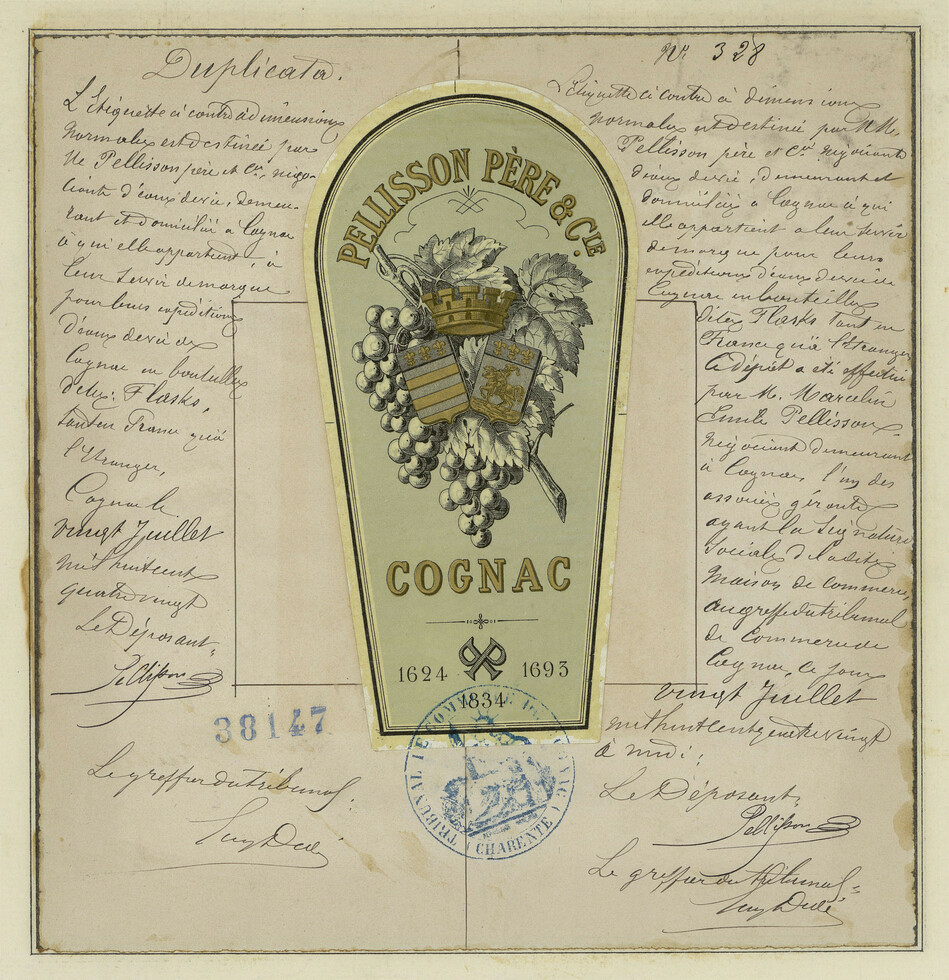 Duplicata.
L'Etiquette ci contre à dimensions
normales est destinée par
Mr Pellisson père et Cie, négo-
ciants d'eaux de vie, demeu-
rant et domicilié à Cognac
à qui elle appartient, à
leur servir de marque
pour leurs expéditions
d'eaux de vie de
Cognac en bouteilles
dites: Flasks,
tant en France qu'à
l'Etranger,
Cognac le
vingt Juillet
mil huit cent
quatre vingt
Le Déposant,
Pellisson
38147
Le greffier du tribunal:
PELLISSON PÈRE & CIE.
COGNAC
1624 1693
1834
TRIBUNAL DE COMMERCE DE COGNAC
(CHARENTE)
No 328
L'Etiquette ci contre à dimensions
normales est destinée par MM.
Pellisson, père et Cie négociants
d'eaux de vie, demeurant et
domiciliés à Cognac à qui
elle appartient à leur servir
de marque pour leurs
expéditions d'eaux de vie de
Cognac en bouteilles
dites Flasks tant en
France qu'à l'étranger
Le dépôt a été effectué
par M. Marcelin
Emile Pellisson
négociant demeurant
à Cognac, l'un des
associés gérants
ayant la signature
sociale de ladite
maison de commerce,
au greffe du tribunal
de commerce de
Cognac, le jour
vingt Juillet
mil huit cent quatre vingt
à midi:
Le Déposant,
Pellisson
Le greffier du tribunal: